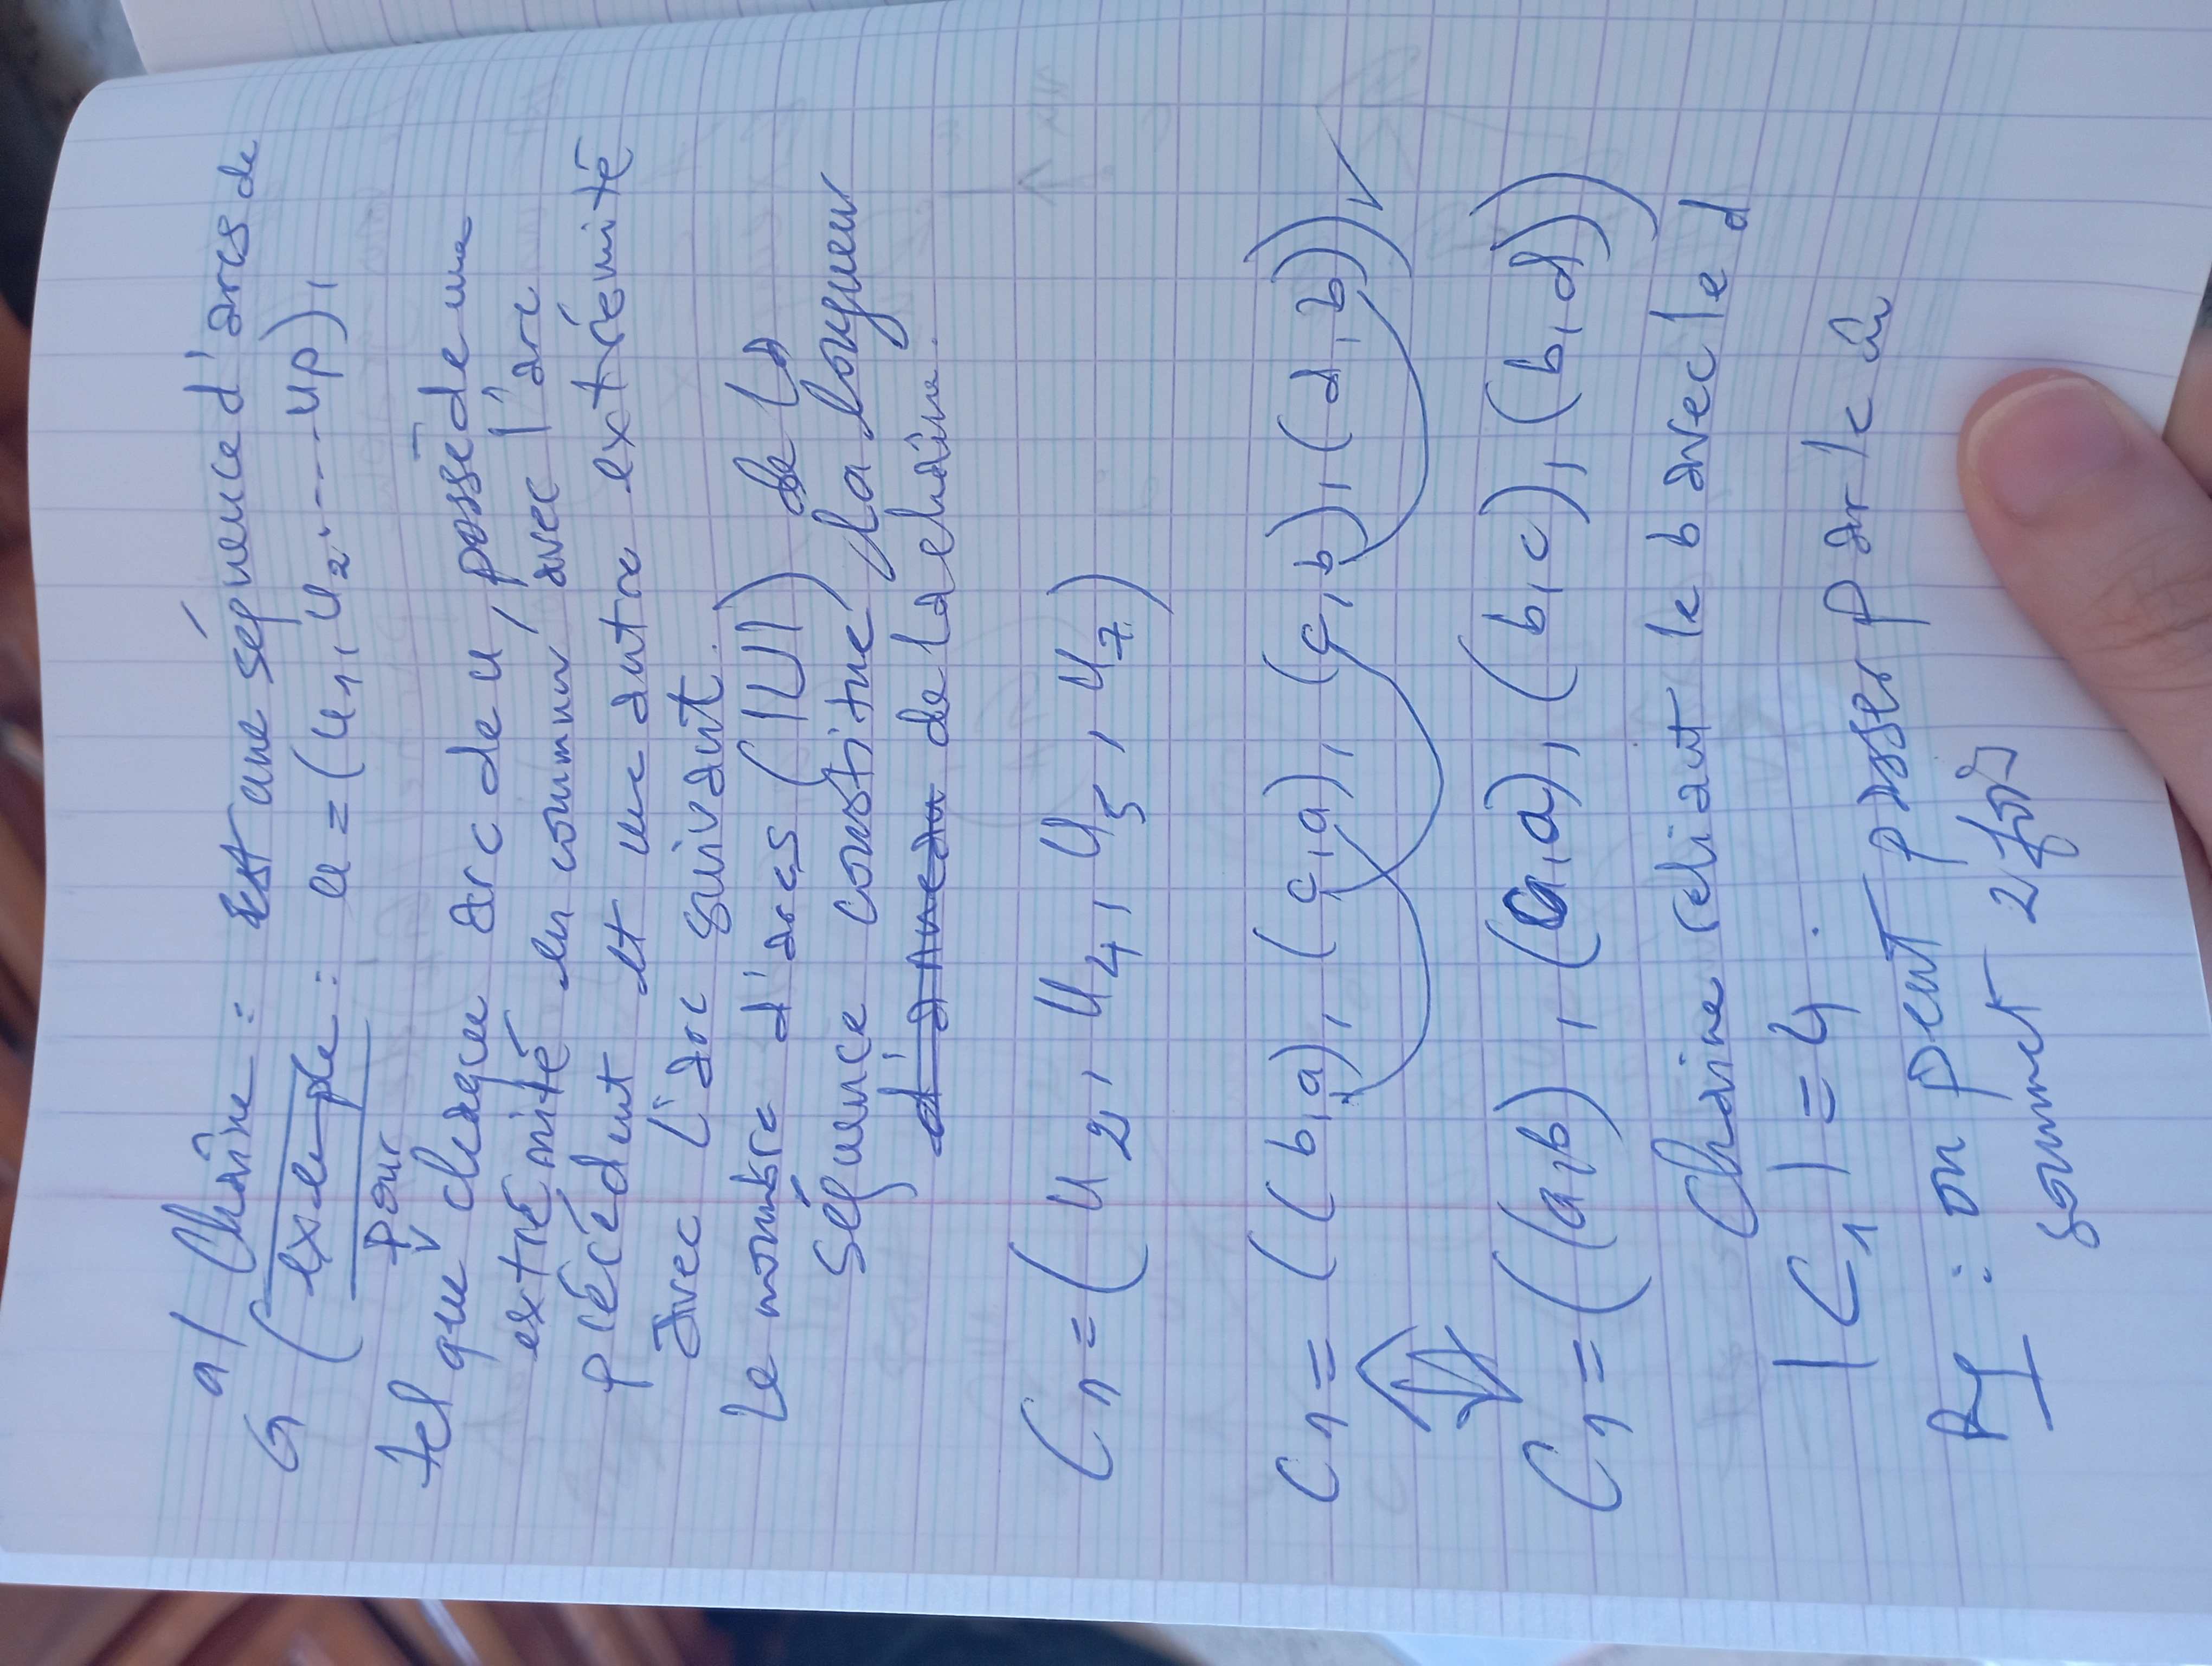 a/ Chaîne : est une séquence d'arcs de
G (exemple : u = (u1, u2.---- up),
pour
tel que chaque arc de u, possède une
extrémité en commun avec l'arc
précédent et une autre extrémité
avec l'arc suivant.
Le nombre d'arcs (|U|) de la
séquence constitue la longueur
d'anneau de la chaîne.
C1 = ( u2, u4, u5, u7 )
C1 = ( ( b,a), (c,a), (c,b), (d,b) ) ✓
C1 = ((a,b), (a,a), (b,c), (b,d))
Chaine reliant le b avec le d
|C1| = 4 .
Rq : on peut passer par le m̂
sommet 2 fois